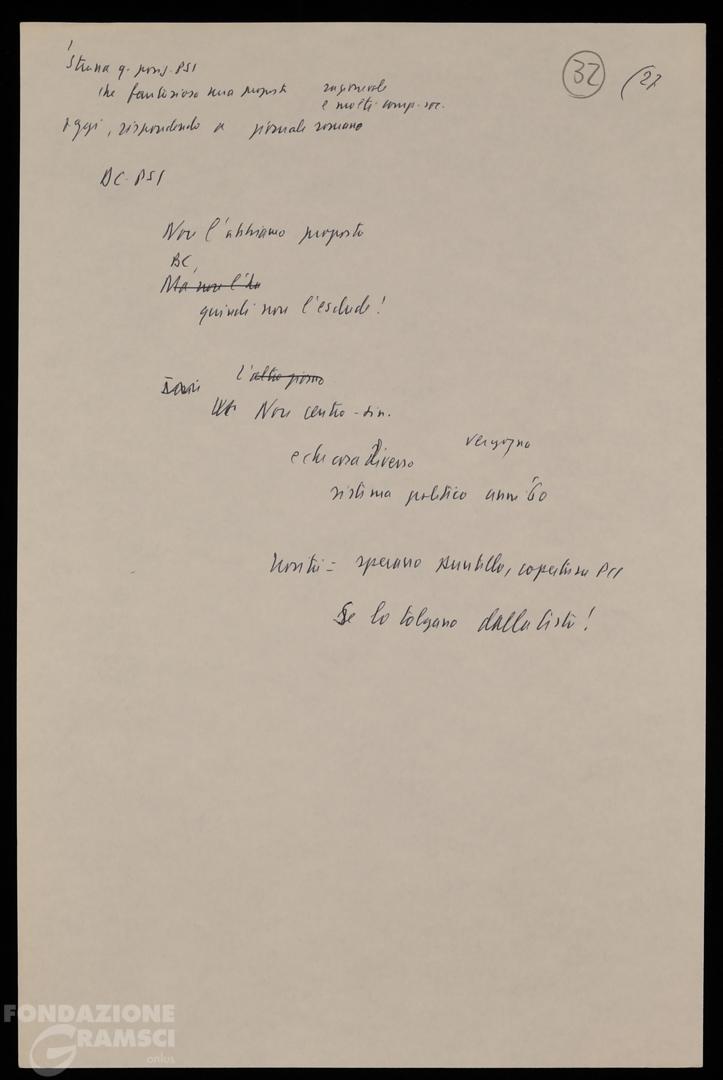 Strana q. pos. PSI
che fantasiosa una proposta ragionevole
e molti comp. soc.
Oggi, rispondendo a giornale romano
32
(27
DC-PSI
Non l'abbiamo proposto
DC,
Ma non l'ha
quindi non l'esclude!
L'altro giorno
Non centro-sin.
vergogna
e che cosa diverso
sistema politico anni '60
Novità = sperano, copertura PCI
Se lo tolgano dalla lista!
FONDAZIONE
GRAMSCI
onlus